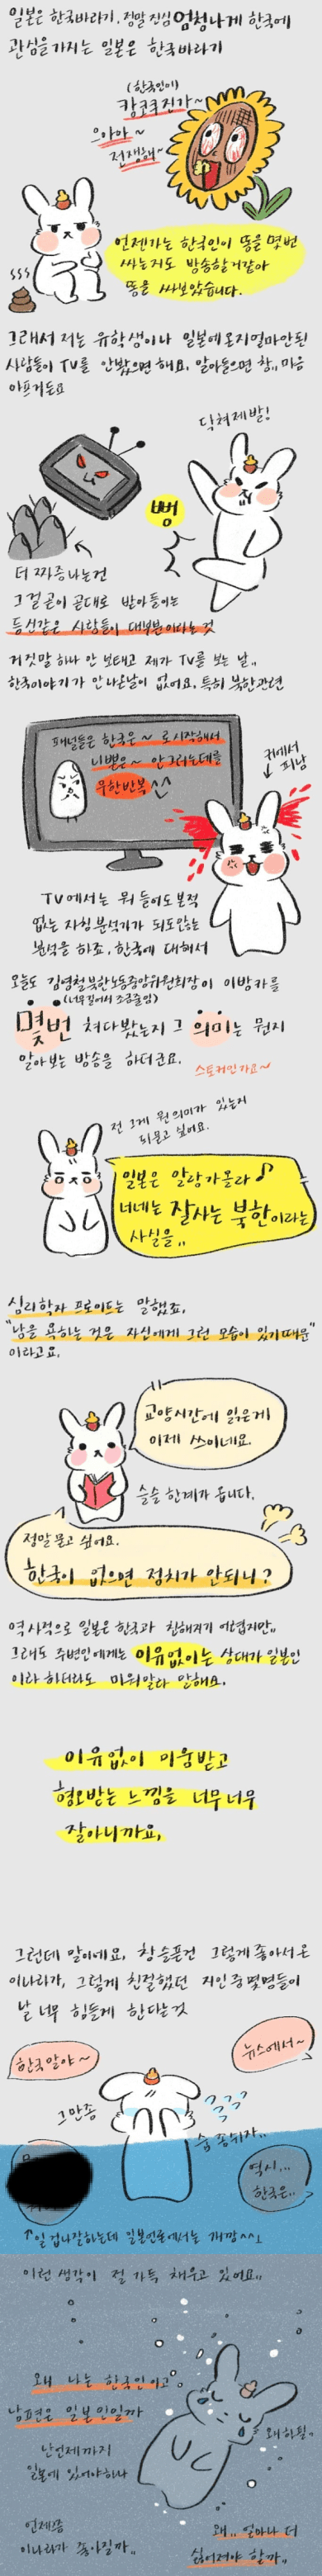 일본은 한국바라기. 정말 진심 엄청나게 한국에
관심을 가지는 일본은 한국바라기
(한국인이)
캉코쿠진가~
으아아~
전쟁해~
언젠가는 한국인이 똥을 몇번
싸는지도 방송할거같아
똥을 싸보았습니다.
그래서 저는 유학생이나 일본에 온지 얼마안된
사람들이 TV를 안봤으면 해요. 알아들으면 참,, 마음
아프거든요
닥쳐제발!
뻥
더 짜증나는건
그걸 곧이 곧대로 받아들이는
등신같은 사람들이 대부분이라는것
거짓말 하나 안 보태고 제가 TV를 보는 날,,
한국이야기가 안나온날이 없어요. 특히 북한관련
패널들은 한국은~ 로 시작해서
니뽄은~ 안그러는데를
무한반복^^
귀에서
피남
TV에서는 뭐 들어도 본적
없는 자칭분석가가 되도않는
분석을 하죠. 한국에 대해서
오늘도 김영철 북한노동중앙위원회장이 이방카를
(너무길어서 조금줄임)
몇번 쳐다봤는지 그 의미는 뭔지
알아보는 방송을 하더군요.
스토커인가요~
전 그게 뭔 의미가 있는지
되묻고 싶어요.
일본은 알랑가몰라♪
너네는 잘사는 북한이라는
사실을,,
심리학자 프로이트는 말했죠.
"남을 욕하는 것은 자신에게 그런 모습이 있기때문"
이라고요.
교양시간에 읽은게
이제 쓰이네요.
슬슬 한계가 옵니다.
정말 묻고 싶어요.
한국이 없으면 정치가 안되니?
역사적으로 일본은 한국과 친해지기 어렵지만,,
그래도 주변인에게는 이유없이는 상대가 일본인
이라 하더라도 미워말라 말해요.
이유없이 미움받고
혐오받는 느낌을 너무너무
잘아니까요,
그런데 말이에요, 참 슬픈건 그렇게 좋아서 온
이나라가, 그렇게 친절했던 지인중 몇명들이
날 너무 힘들게 한다는것
한국말야~
뉴스에서~
그만좀
숨 좀쉬자..
역시,,,
한국은,,
↑일 겁나잘하는데 일본언론에서는 개깜^^ㅗ
이런 생각이 절 가득 채우고 있어요,,
왜 나는 한국인이고
남편은 일본인일까
왜하필,
난언제까지
일본에 있어야하나
언제쯤
이나라가 좋아질까,,
왜,, 얼마나 더
싫어져야 할까,,